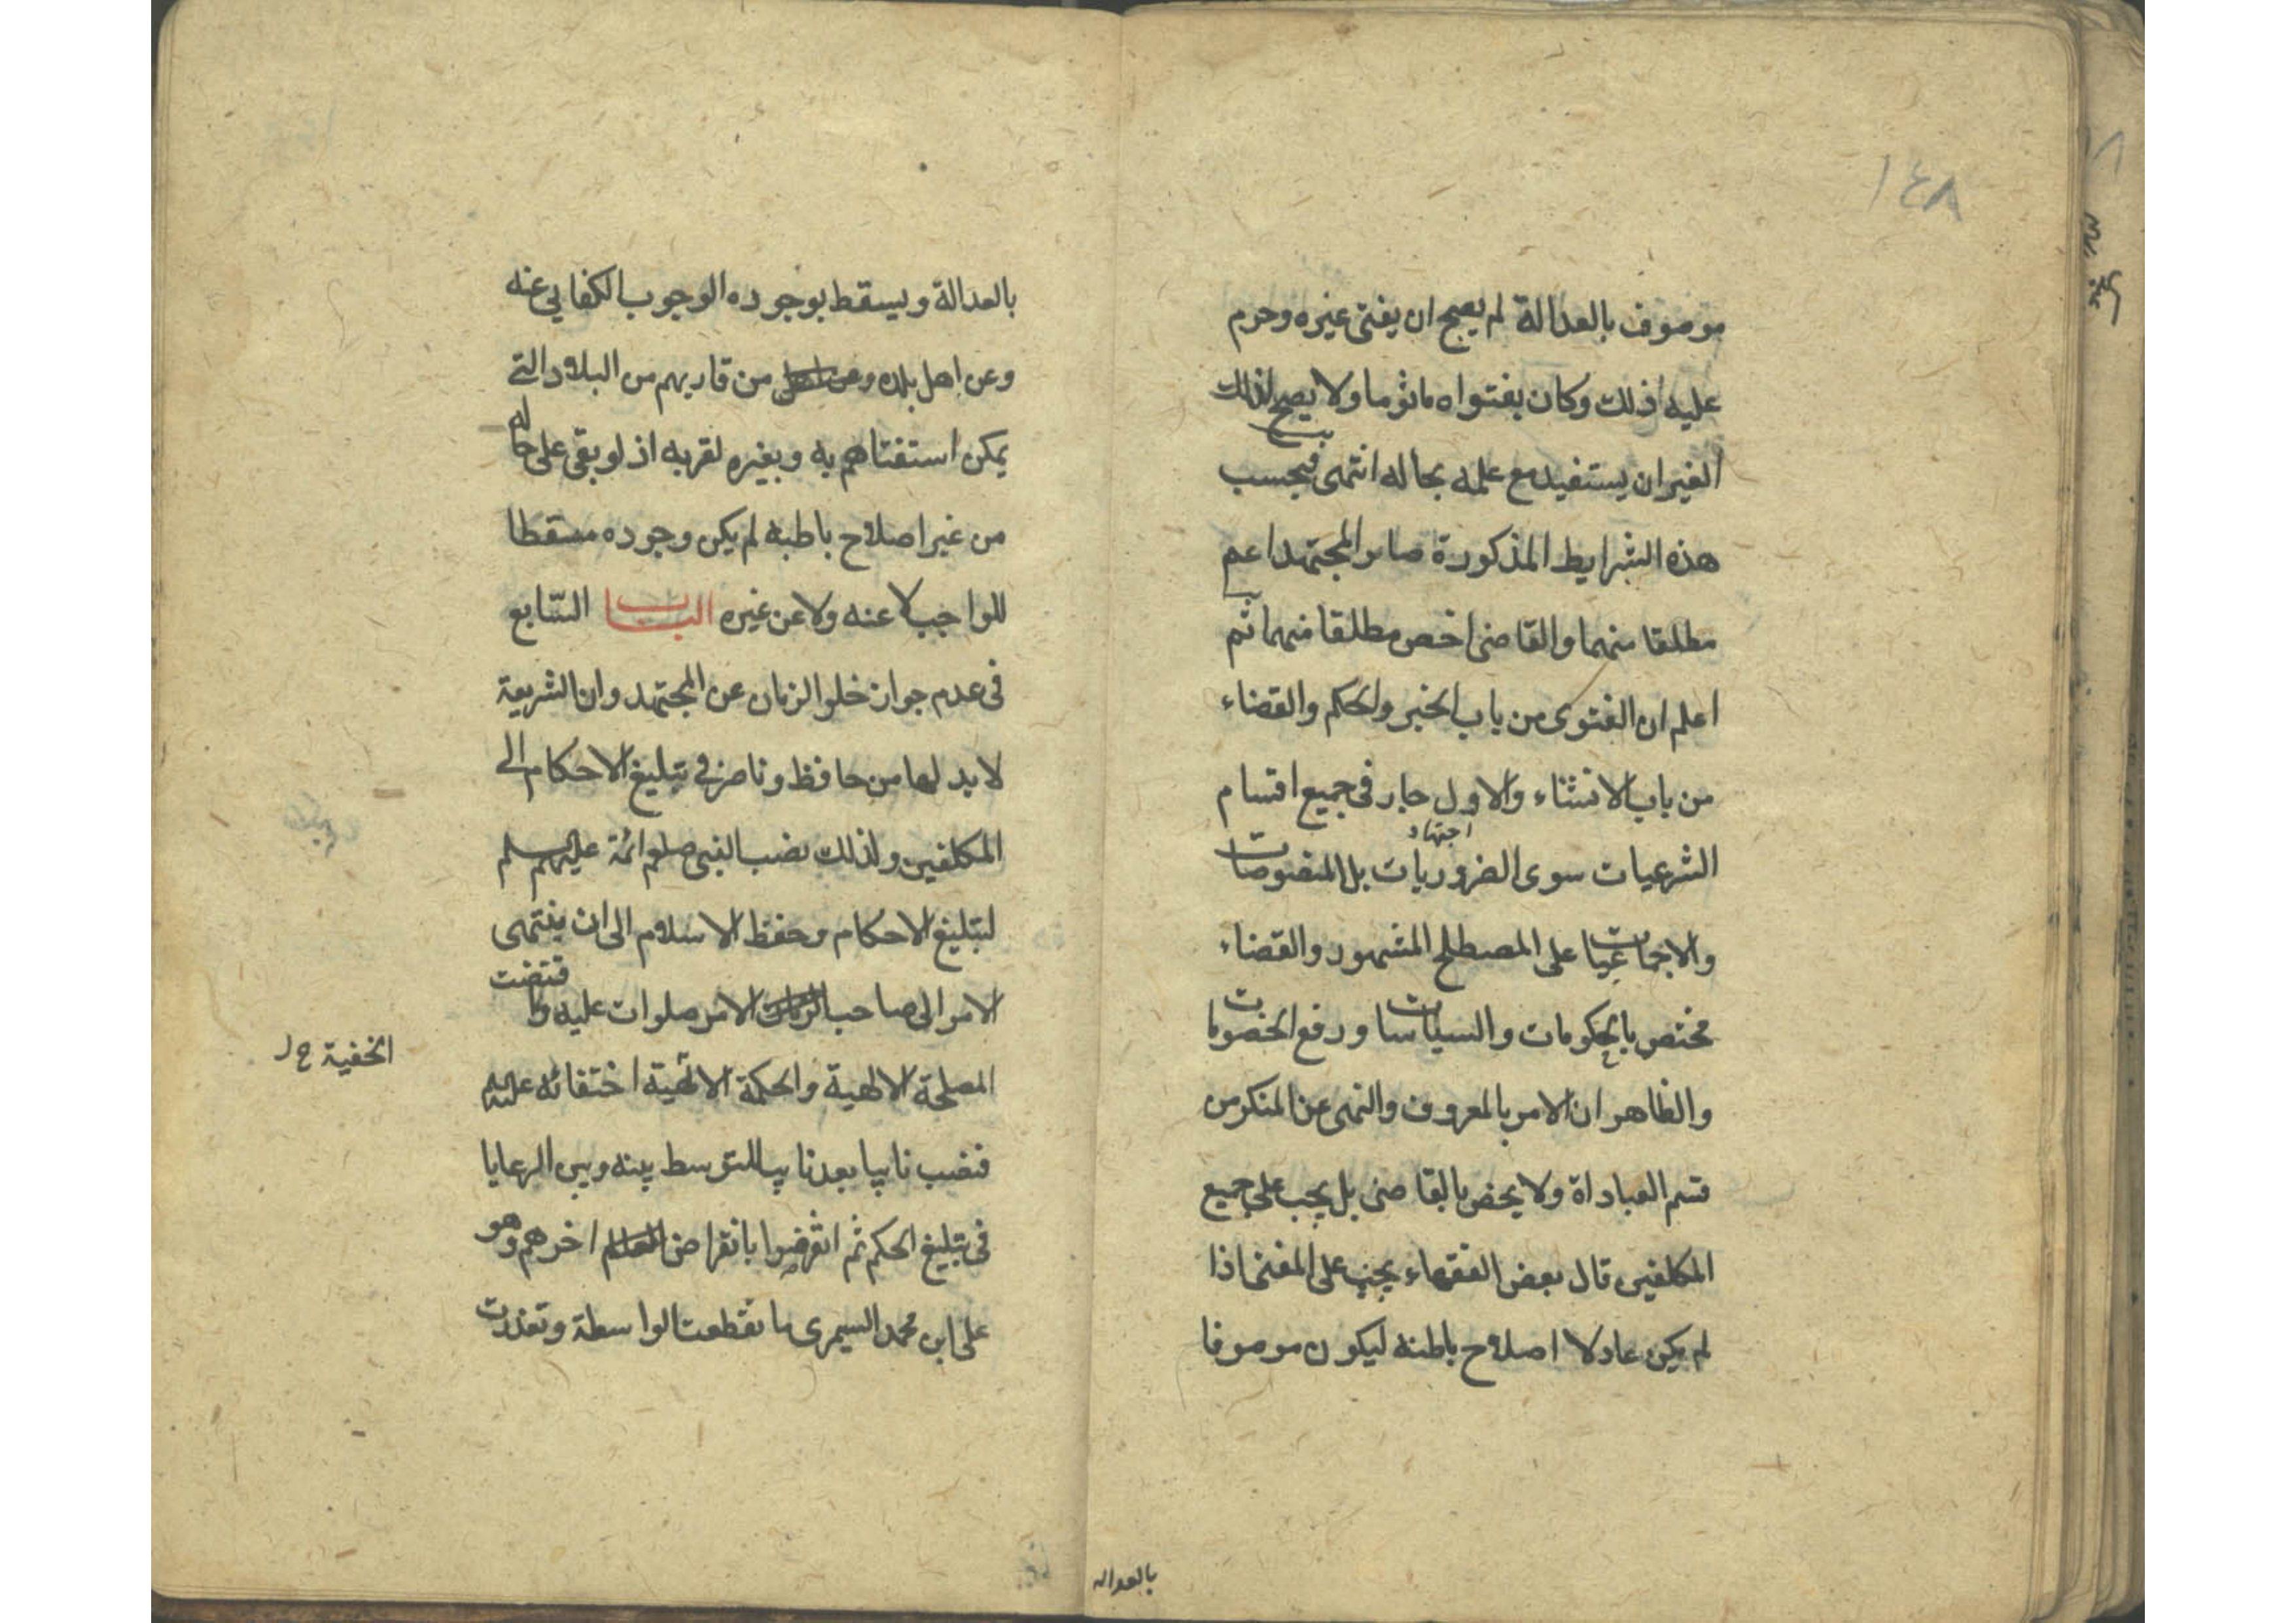 ١٤٨
موصوف بالعدالة لم يصح ان يفتى غيره وحرم
عليه ذلك وكان بفتواه ماثوما ولا يصح لذلك
الغير ان يستفيد مع علمه بحاله انتهى فبحسب
هذه الشرايط المذكورة صار المجتهد اعم
مطلقا منهما والقاضى اخص مطلقا منهما ثم
اعلم ان الفتوى من باب الخبر والحكم والقضاء
من باب الانشاء والاول جار فى جميع اقسام
اجتهاد
الشرعيات سوى الضروريات بل المنصوصات
والاجماعيات على المصطلح المشهور والقضاء
مختص بالحكومات والسياسات ورفع الخصومات
والظاهر ان الامر بالمعروف والنهى عن المنكر من
قسم العباداة ولا يخص بالقاضى بل يجب على جميع
المكلفين قال بعض الفقهاء يجب على المفتى اذا
لم يكن عادلا اصلاح باطنه ليكون موصوفا
بالعداله
بالعدالة ويسقط بوجوده الوجوب الكفايى عنه
وعن اهل بلده من قاربهم من البلاد التى
يمكن استفتاهم به وبغيره لقربه اذ لو بقى على حاله
من غير اصلاح باطبه لم يكن وجوده مسقطا
للواجب لا عنه ولا عن غيره الباب السّابع
فى عدم جواز خلو الزمان عن المجتهد وان الشريعة
لا بد لها من حافظ وناصر فى تبليغ الاحكام الى
المكلفين ولذلك نصب النبى صلعم ائمة عليهم
لتبليغ الاحكام وحفظ الاسلام الى ان ينتهى
الامر الى صاحب الامر صلوات عليه واقتضت
المصلحة الالهية والحكمة الالهية اختفائه عليه
الخفية ح ل
فنصب نايبا بعد نايب للتوسط بينه وبين الرعايا
فى تبليغ الحكم ثم انقرضوا بانقراض اخرهم وهو
على ابن محمد السيمرى فانقطعت الواسطة وتعذرت